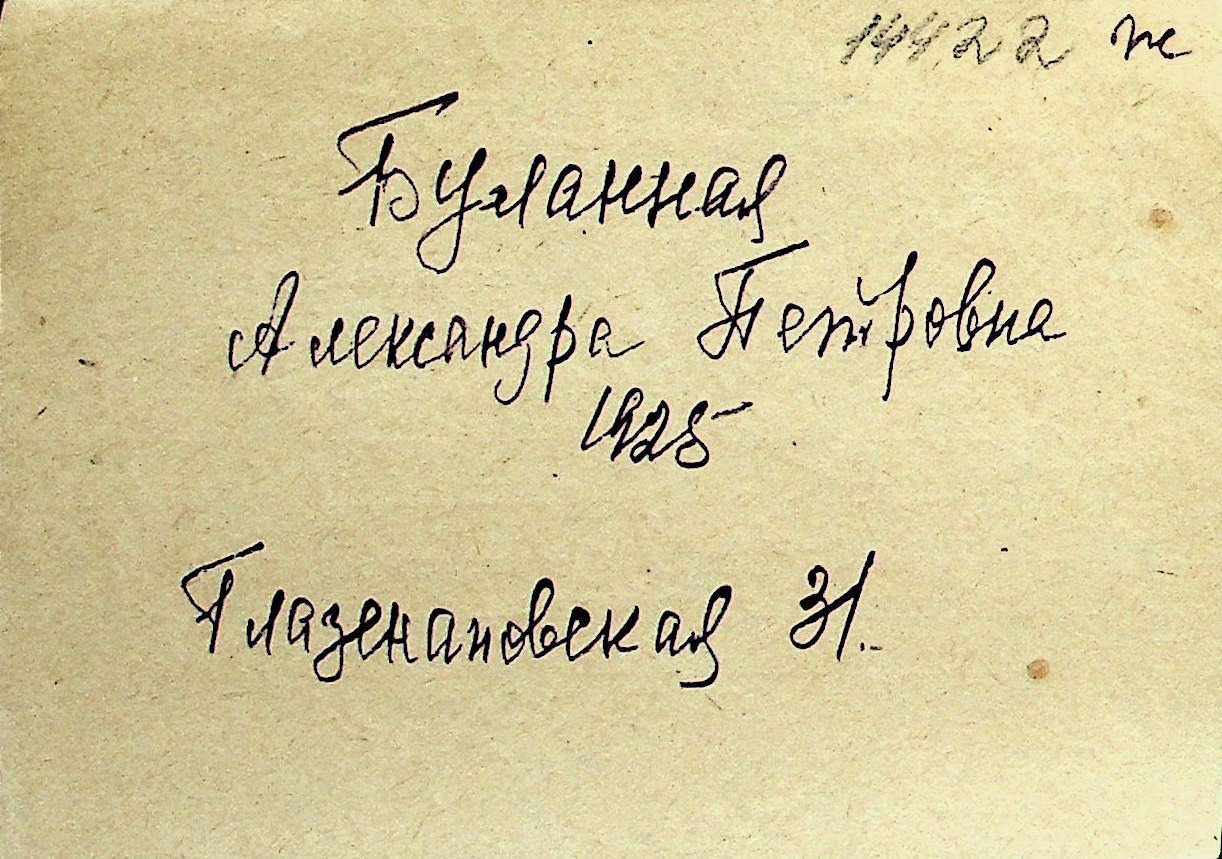 14422 ж
Буланная
Александра Петровна
1925
Глазенаповская 31.